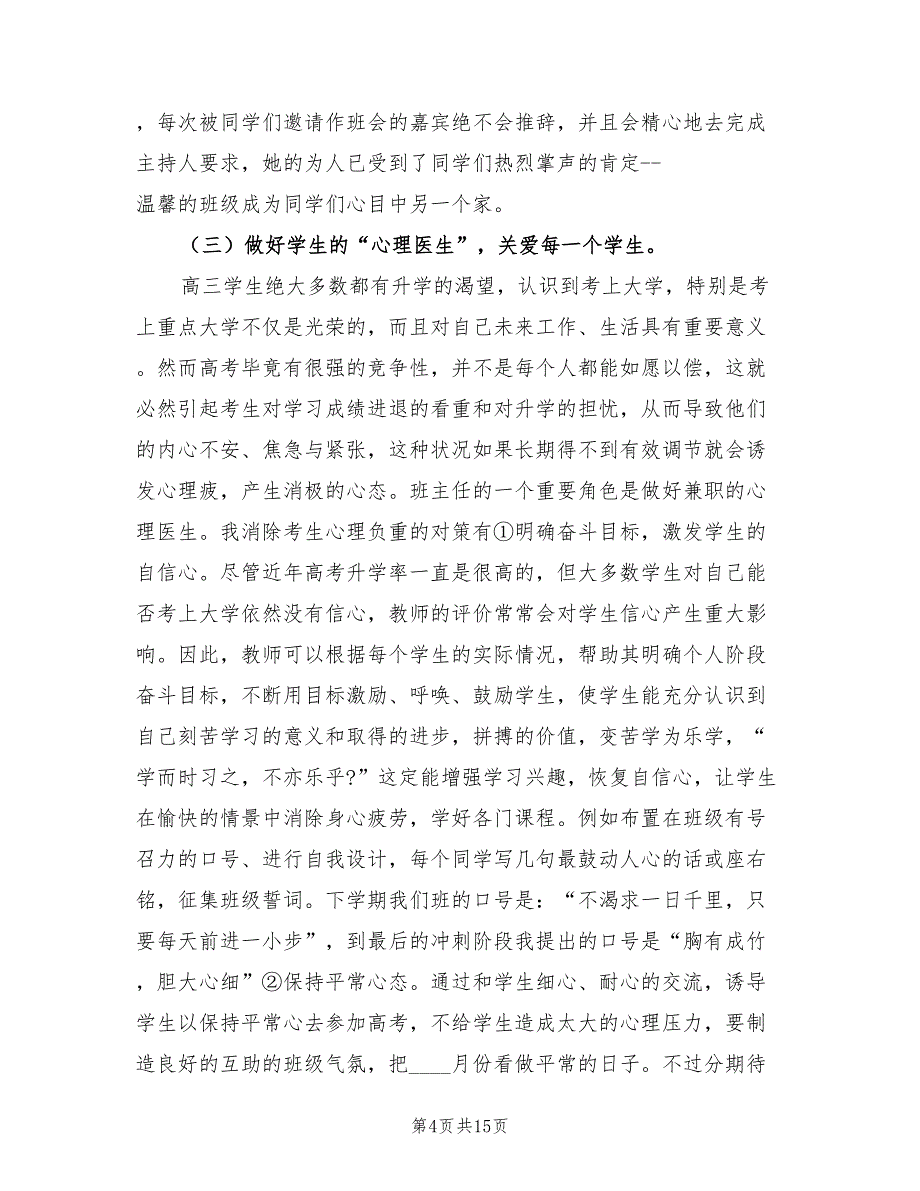 ，每次被同学们邀请作班会的嘉宾绝不会推辞，并且会精心地去完成
主持人要求，她的为人已受到了同学们热烈掌声的肯定--
温馨的班级成为同学们心目中另一个家。
（三）做好学生的“心理医生”，关爱每一个学生。
高三学生绝大多数都有升学的渴望，认识到考上大学，特别是考
上重点大学不仅是光荣的，而且对自己未来工作、生活具有重要意义
。然而高考毕竟有很强的竞争性，并不是每个人都能如愿以偿，这就
必然引起考生对学习成绩进退的看重和对升学的担忧，从而导致他们
的内心不安、焦急与紧张，这种状况如果长期得不到有效调节就会诱
发心理疲，产生消极的心态。班主任的一个重要角色是做好兼职的心
理医生。我消除考生心理负重的对策有①明确奋斗目标，激发学生的
自信心。尽管近年高考升学率一直是很高的，但大多数学生对自己能
否考上大学依然没有信心，教师的评价常常会对学生信心产生重大影
响。因此，教师可以根据每个学生的实际情况，帮助其明确个人阶段
奋斗目标，不断用目标激励、呼唤、鼓励学生，使学生能充分认识到
自己刻苦学习的意义和取得的进步，拼搏的价值，变苦学为乐学，“
学而时习之，不亦乐乎?”这定能增强学习兴趣，恢复自信心，让学生
在愉快的情景中消除身心疲劳，学好各门课程。例如布置在班级有号
召力的口号、进行自我设计，每个同学写几句最鼓动人心的话或座右
铭，征集班级誓词。下学期我们班的口号是：“不渴求一日千里，只
要每天前进一小步”，到最后的冲刺阶段我提出的口号是“胸有成竹
，胆大心细”②保持平常心态。通过和学生细心、耐心的交流，诱导
学生以保持平常心去参加高考，不给学生造成太大的心理压力，要制
造良好的互助的班级气氛，把____月份看做平常的日子。不过分期待
第4页共15页